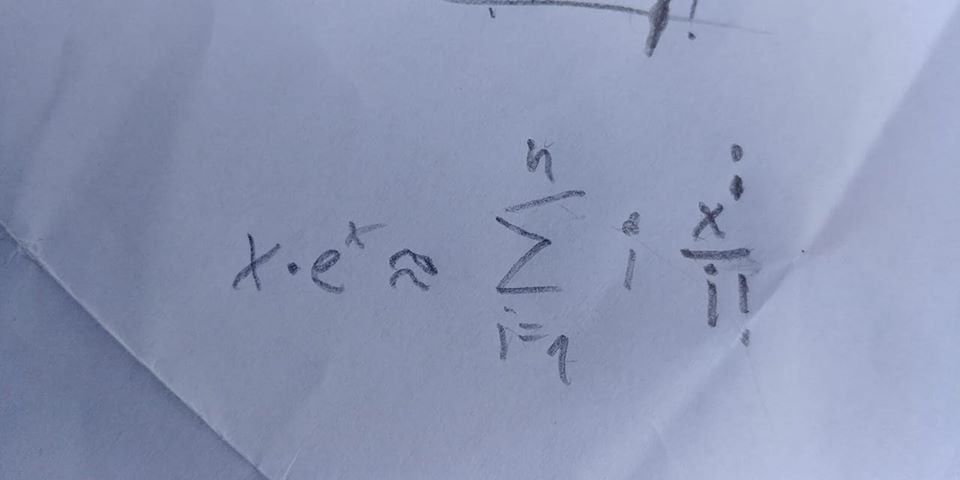 x·eˣ ≈ ∑ᵢ₌₁ⁿ i xⁱ/i!